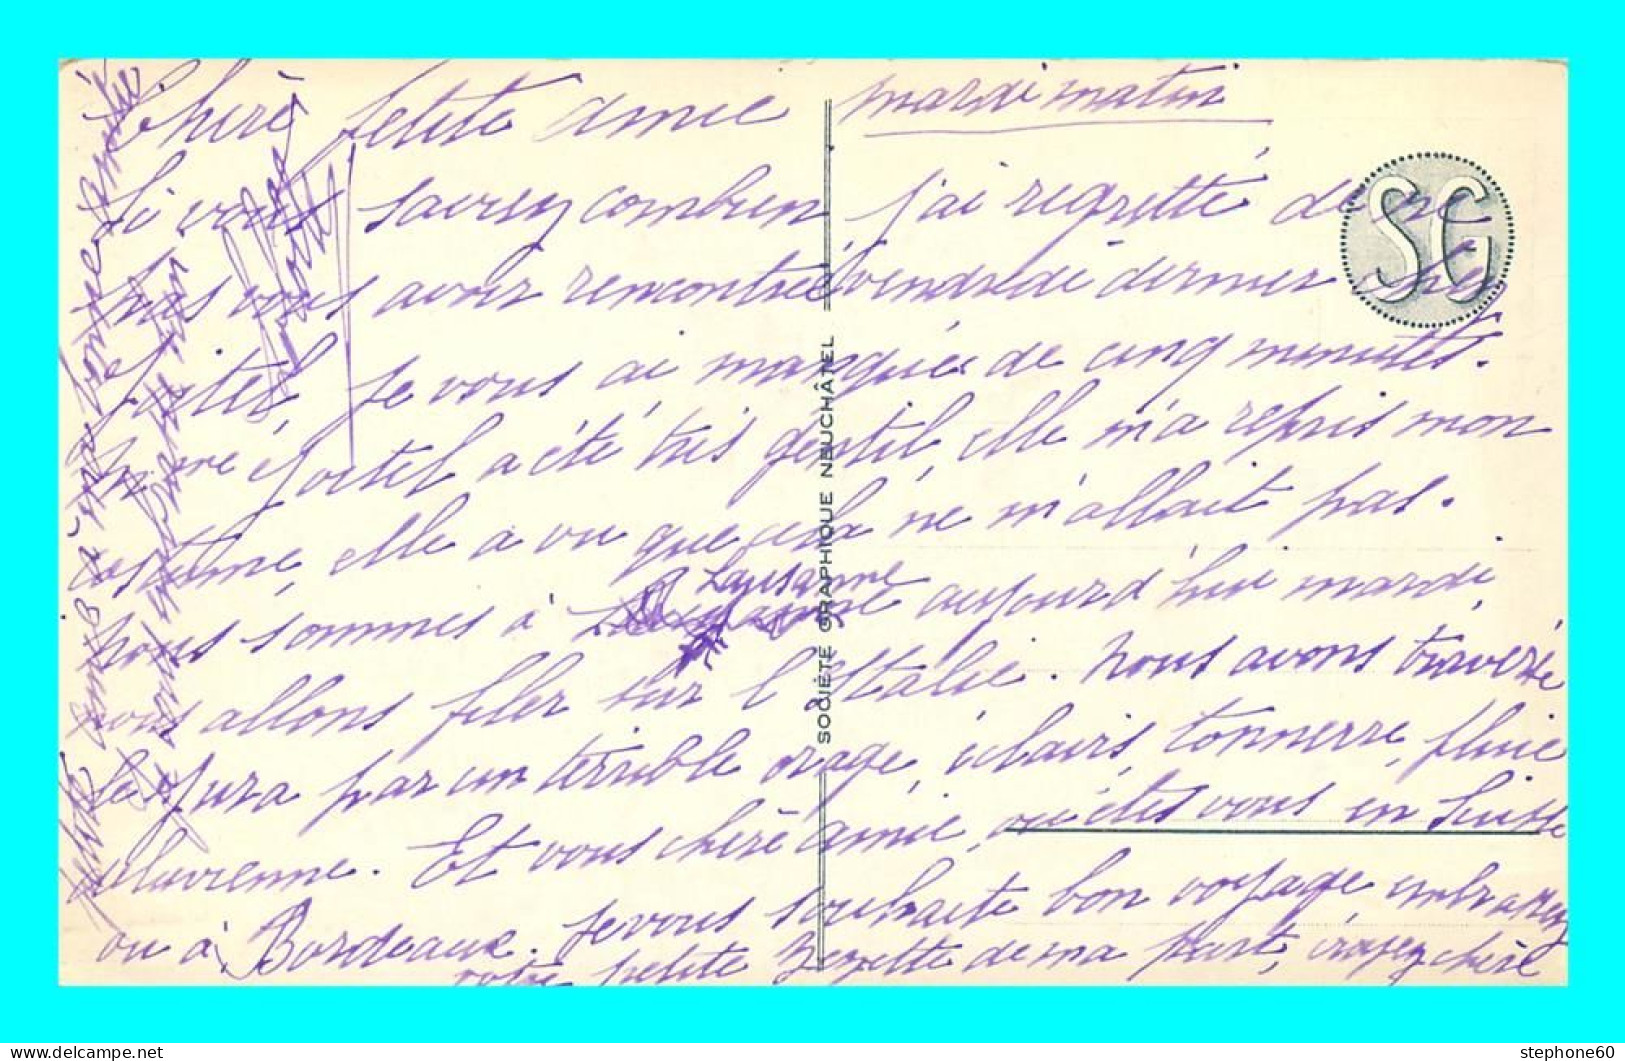 mardi matin
Chère petite amie
Si vous saviez combien j'ai regretté de ne
pas vous avoir rencontrée vendredi dernier chez
Jostel, je vous ai manquée de cinq minutes.
Mme Jostel a été très gentil, elle m'a repris mon
costume, elle a vu que cela ne m'allait pas.
nous sommes à Lausanne aujourd'hui mardi,
nous allons filer sur l'Italie. nous avons traversé
le Jura par un terrible orage, éclairs, tonnerre, pluie
diluvienne. Et vous chère amie, où êtes vous en Suisse
ou à Bordeaux. Je vous souhaite bon voyage embrassez
votre petite de ma part, croyez chère
petite amie à ma bonne amitié
SOCIÉTÉ GRAPHIQUE NEUCHÂTEL
SG
stephone60